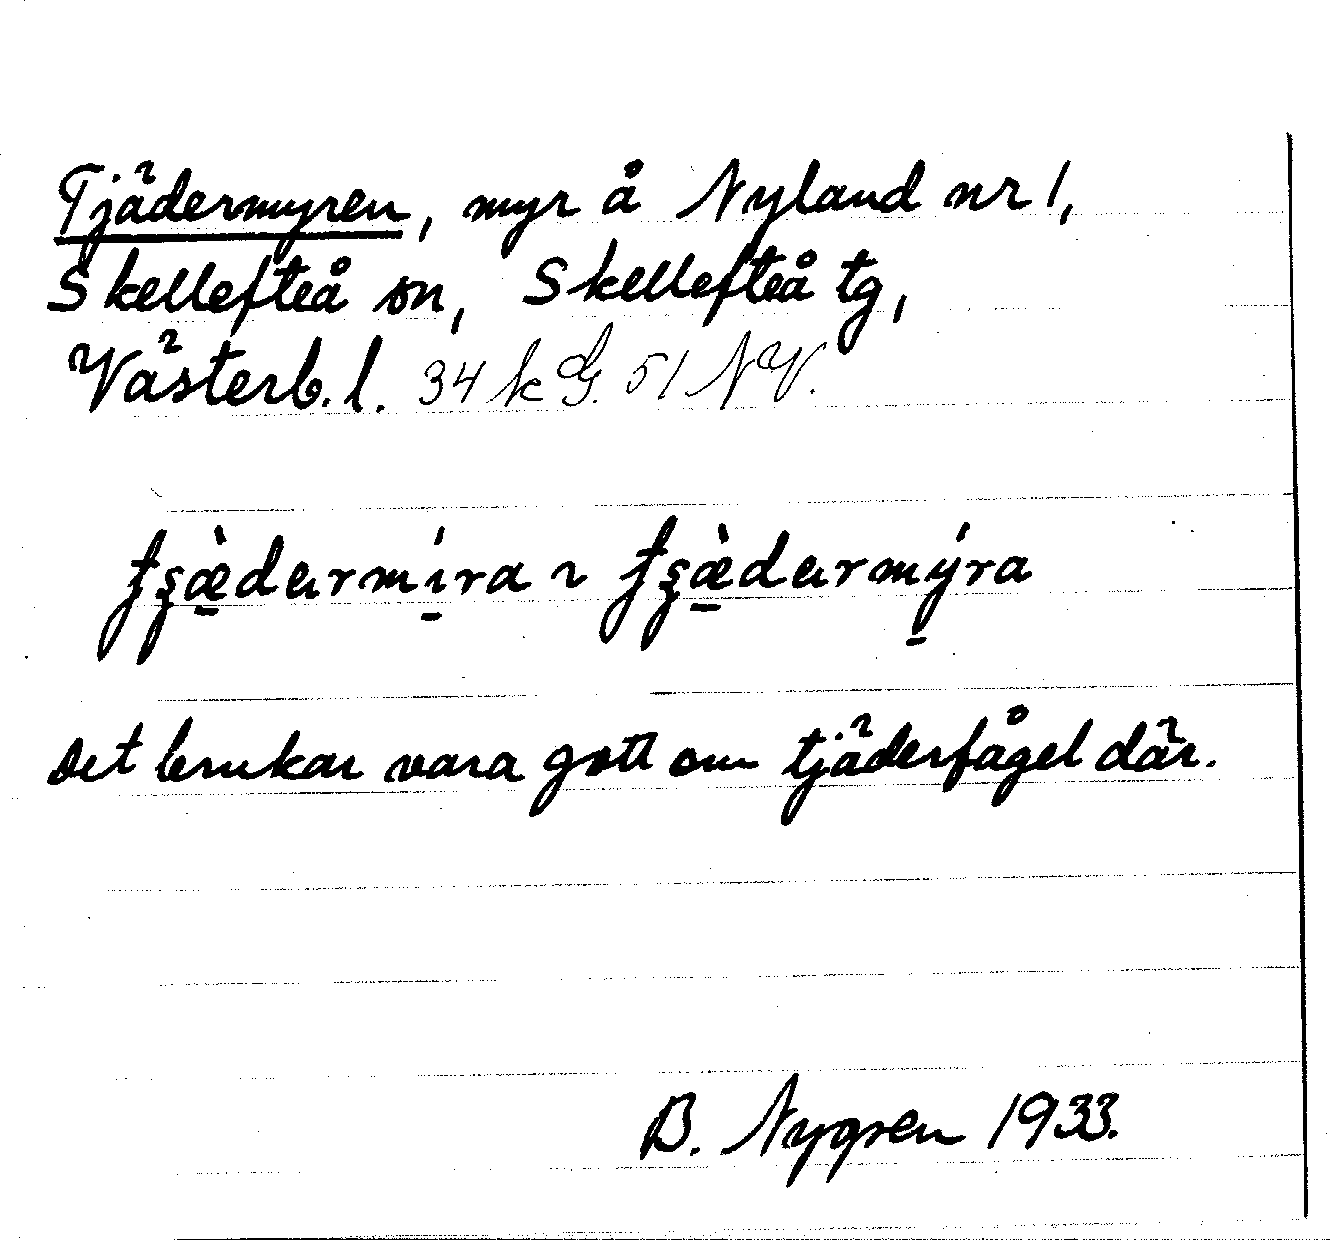 Tjädermyren, myr å Nyland nr 1,
Skellefteå sn, Skellefteå tg,
Västerb. l. 34 k G. 51 NV.
ʈʂæ̠̀dərmí̠ra ~ ʈʂæ̠̀dərmý̠ra
Det brukar vara gott om tjäderfågel där.
B. Nygren 1933.